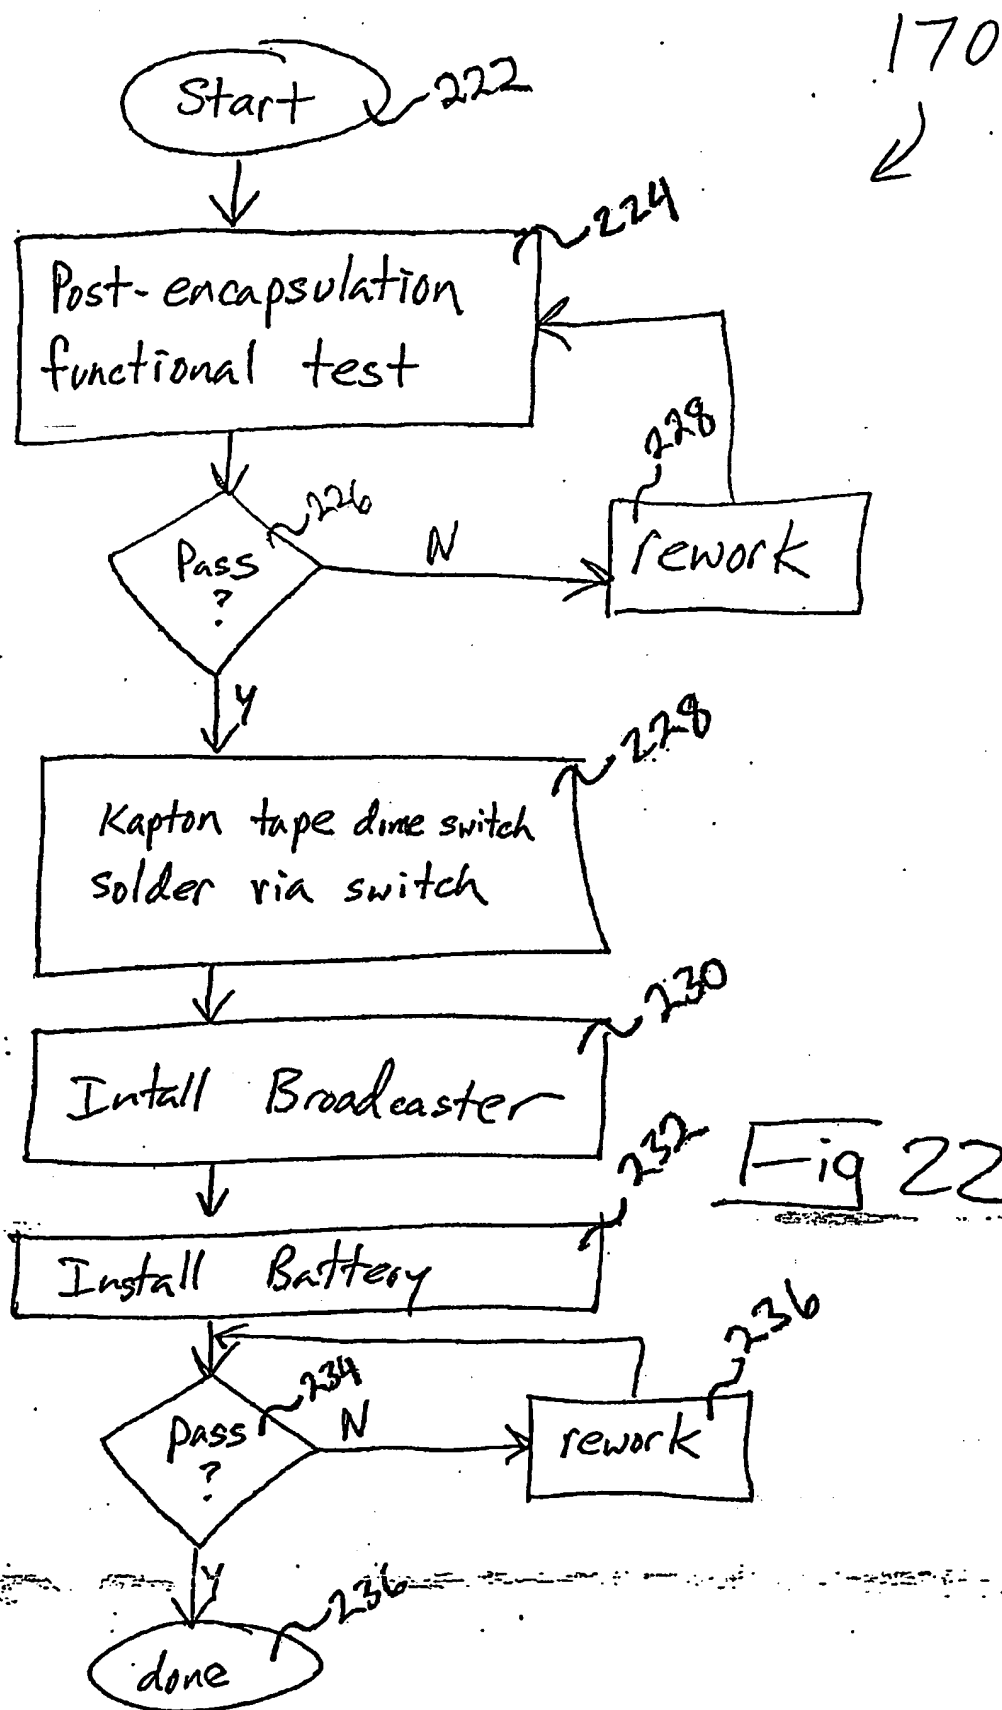 170
Start
222
224
Post-encapsulation
functional test
228
rework
226
Pass
?
N
Y
228
Kapton tape dome switch
solder via switch
230
Intall Broadcaster
232
Fig 22
Install Battery
236
234
pass
?
N
rework
Y
236
done